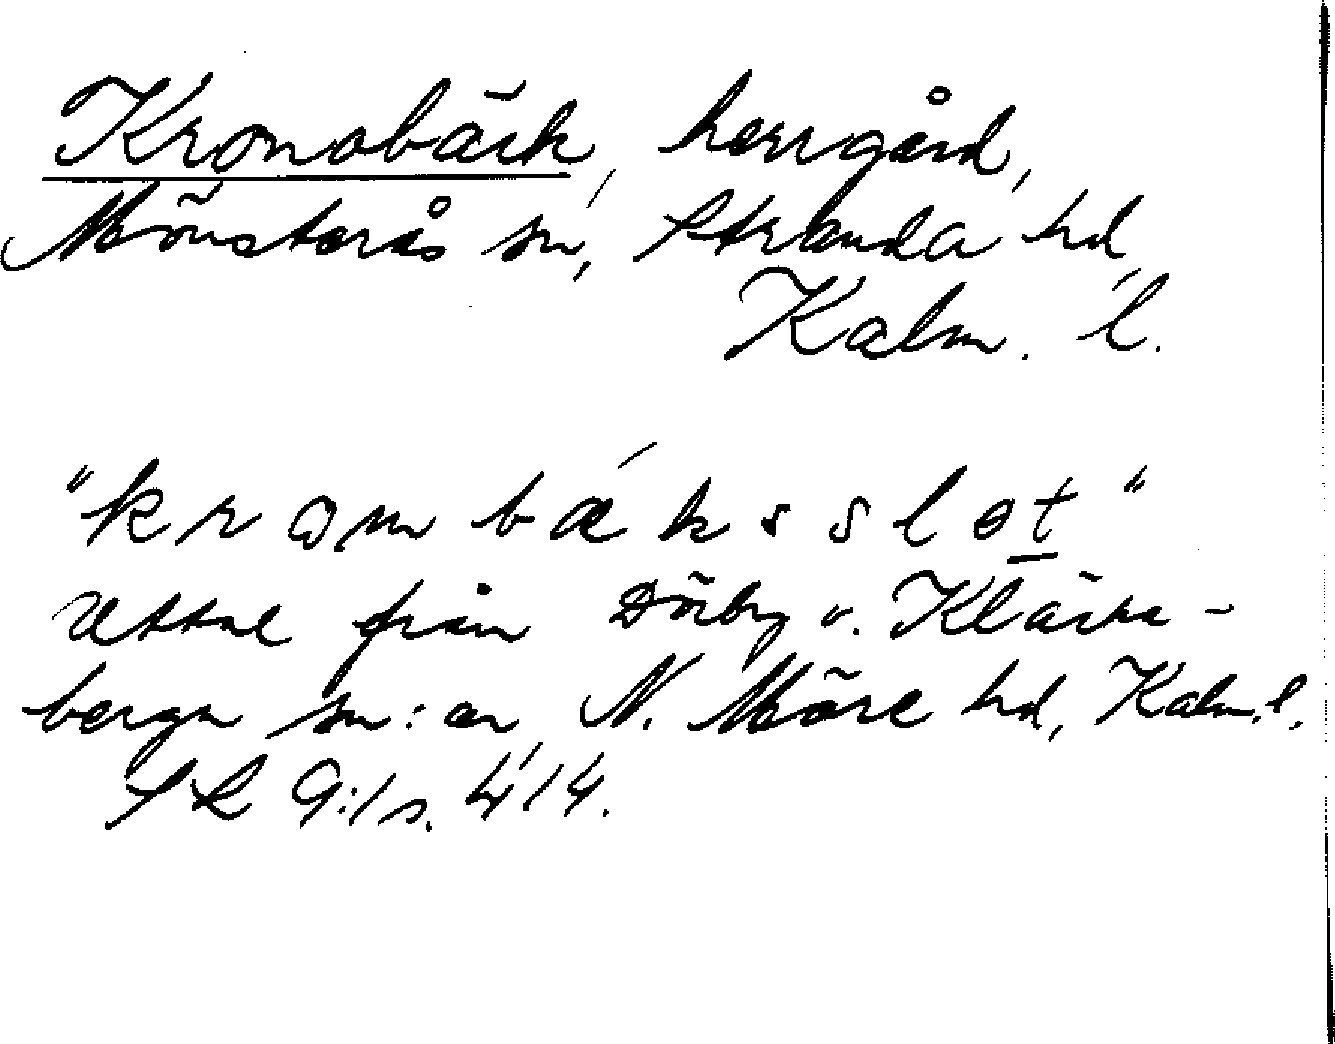 Kronobäck, herrgård,
Mönsterås sn, Stranda hd,
Kalm. l.
"kromb ǽ k s s l o t"
uttal från Dörby o. Kläcke-
berga sn:ar, N. Möre hd, Kalm. l.
SL 9:1 s. 414.